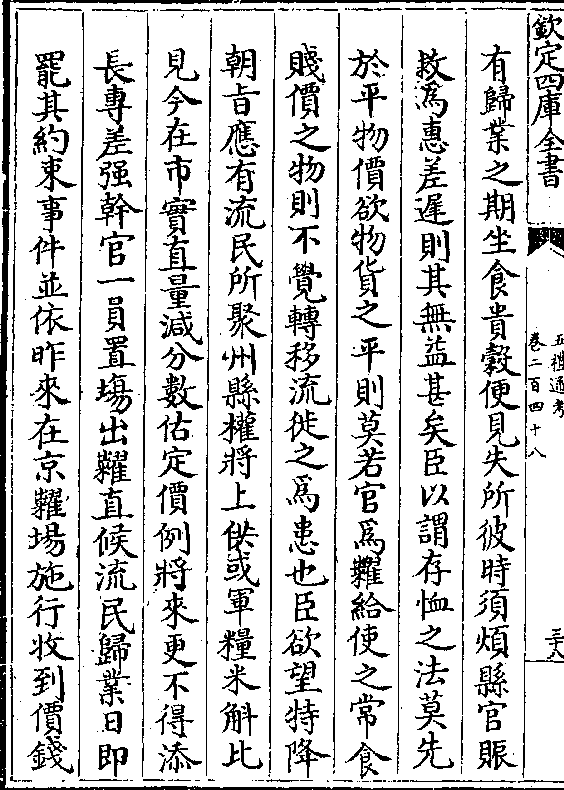 欽定四庫全書
五禮通考
卷二百四十八
三六
有歸業之期坐食貴糓便見失所彼時須煩縣官賑
救爲惠差遲則其無益甚矣臣以謂存恤之法莫先
於平物價欲物貨之平則莫若官爲糶給使之常食
賤價之物則不覺轉移流徙之爲患也臣欲望特降
朝旨應有流民所聚州縣權將上供或軍糧米斛比
見今在市實直量減分數估定價例將來更不得添
長專差强幹官一員置塲出糶直候流民歸業日即
罷其約束事件並依昨來在京糶塲施行收到價錢